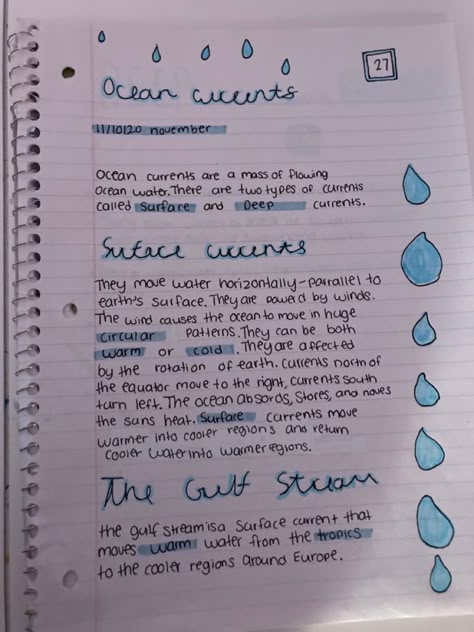 27
Ocean currents
11/10/20 november
Ocean currents are a mass of flowing
ocean water. There are two types of currents
called Surface and Deep currents.
Surface currents
They move water horizontally-parrallel to
earth's surface. They are powerd by winds.
The wind causes the ocean to move in huge
circular patterns. They can be both
warm or cold. They are affected
by the rotation of earth. Currents north of
the equator move to the right, currents south
turn left. The ocean absords, stores, and moves
the suns heat. Surface currents move
warmer into cooler regions and return
cooler water into warmer regions.
The Gulf Stream
the gulf stream is a surface current that
moves warm water from the tropics
to the cooler regions around Europe.